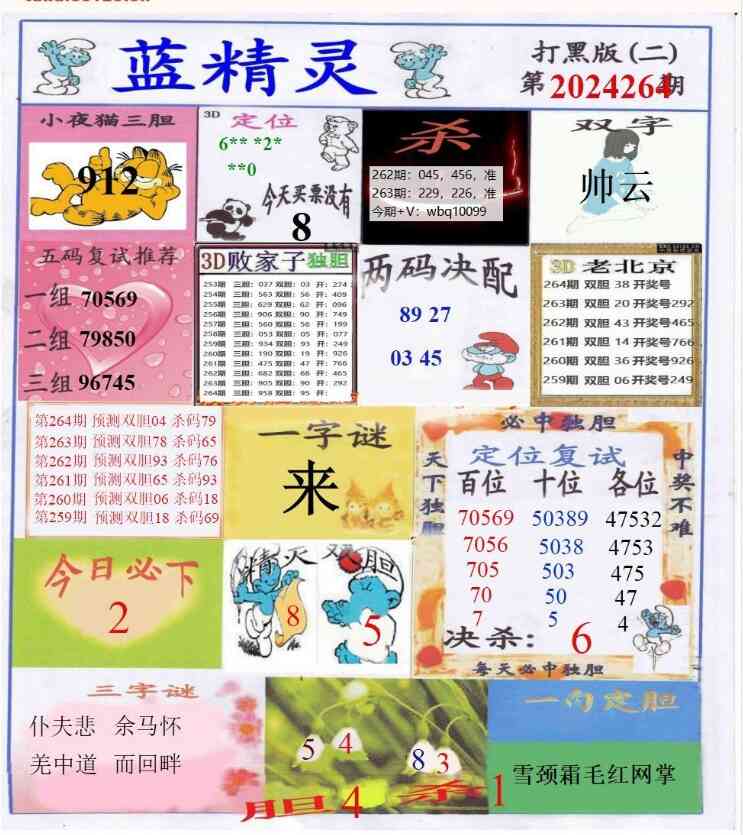 蓝精灵
打黑版(二)
第2024264期
小夜猫三胆
912
3D
定位
6** *2*
**0
今天买票没有
8
杀
262期：045，456，准
263期：229，226，准
今期+V：wbq10099
双字
帅云
五码复试推荐
一组 70569
二组 79850
三组 96745
3D败家子独胆
253期 三胆：077 双胆：03 开：274
254期 三胆：563 双胆：56 开：409
255期 三胆：629 双胆：62 开：096
256期 三胆：906 双胆：90 开：749
257期 三胆：560 双胆：56 开：199
258期 三胆：053 双胆：05 开：077
259期 三胆：934 双胆：93 开：249
260期 三胆：190 双胆：19 开：926
261期 三胆：475 双胆：47 开：766
262期 三胆：682 双胆：66 开：465
263期 三胆：905 双胆：90 开：292
264期 三胆：958 双胆：95 开：
两码决配
89 27
03 45
3D 老北京
264期 双胆 38 开奖号
263期 双胆 20 开奖号292
262期 双胆 43 开奖号465
261期 双胆 14 开奖号766
260期 双胆 36 开奖号926
259期 双胆 06 开奖号249
第264期 预测双胆04 杀码79
第263期 预测双胆78 杀码65
第262期 预测双胆93 杀码76
第261期 预测双胆65 杀码93
第260期 预测双胆06 杀码18
第259期 预测双胆18 杀码69
一字谜
来
必中独胆
天下独胆
中奖不难
定位复试
百位 十位 各位
70569 50389 47532
7056 5038 4753
705 503 475
70 50 47
7 5 4
决杀： 6
每天必中独胆
今日必下
2
精灵双胆
8
5
三字谜
仆夫悲 余马怀
羌中道 而回畔
5 4
8 3
胆 4 杀 1
一句定胆
雪颈霜毛红网掌